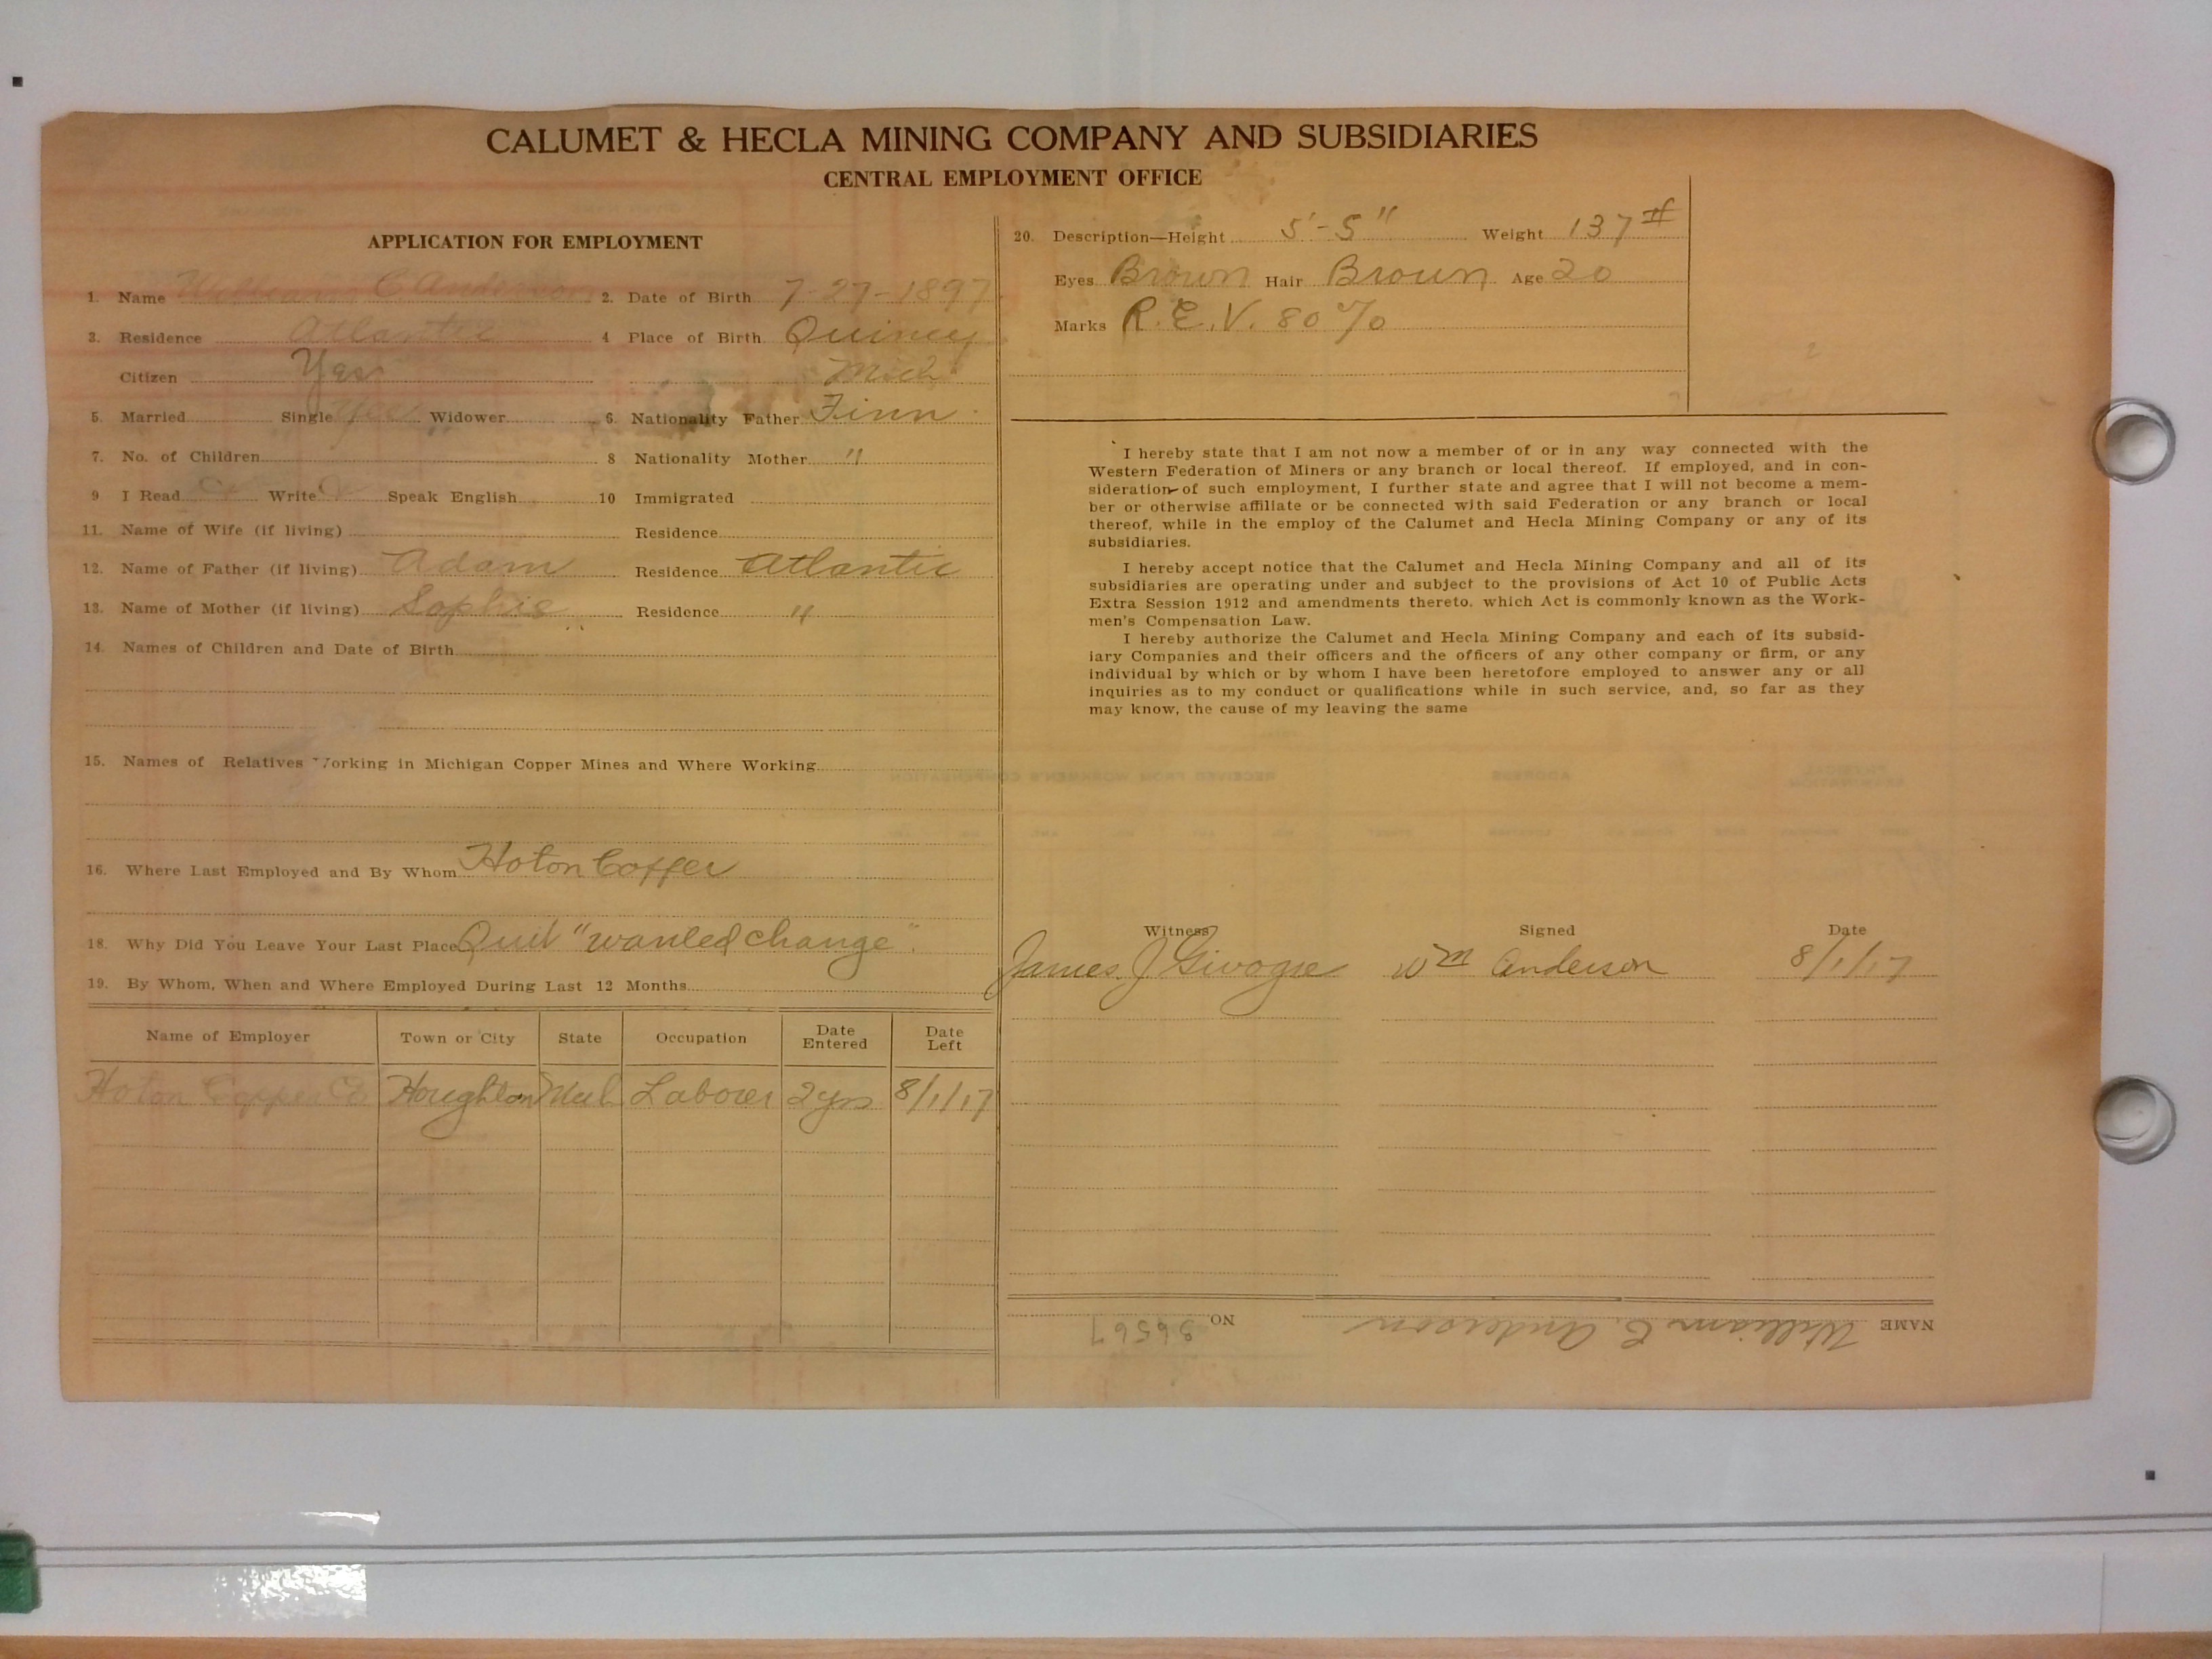 CALUMET & HECLA MINING COMPANY AND SUBSIDIARIES
CENTRAL EMPLOYMENT OFFICE
APPLICATION FOR EMPLOYMENT
1. Name William C Anderson 2. Date of Birth 7-27-1897
3. Residence Atlantic 4 Place of Birth Quincy
Citizen Yes Mich
5. Married Single Yes Widower 6. Nationality Father Finn
7. No. of Children 8 Nationality Mother "
9 I Read Write Speak English 10 Immigrated
11. Name of Wife (if living) Residence
12. Name of Father (if living) Adam Residence Atlantic
13. Name of Mother (if living) Sophie Residence "
14. Names of Children and Date of Birth
15. Names of Relatives Working in Michigan Copper Mines and Where Working
16. Where Last Employed and By Whom Hoton Copper
18. Why Did You Leave Your Last Place Quit "wanted change".
19. By Whom, When and Where Employed During Last 12 Months
Name of Employer Town or City State Occupation Date Entered Date Left
Hoton Copper Co Houghton Mich Laborer 2 yrs 8/1/17
20. Description—Height 5'-5" Weight 137#
Eyes Brown Hair Brown Age 20
Marks R.E.V. 80%
I hereby state that I am not now a member of or in any way connected with the
Western Federation of Miners or any branch or local thereof. If employed, and in con-
sideration of such employment, I further state and agree that I will not become a mem-
ber or otherwise affiliate or be connected with said Federation or any branch or local
thereof, while in the employ of the Calumet and Hecla Mining Company or any of its
subsidiaries.
I hereby accept notice that the Calumet and Hecla Mining Company and all of its
subsidiaries are operating under and subject to the provisions of Act 10 of Public Acts
Extra Session 1912 and amendments thereto. which Act is commonly known as the Work-
men's Compensation Law.
I hereby authorize the Calumet and Hecla Mining Company and each of its subsid-
iary Companies and their officers and the officers of any other company or firm, or any
individual by which or by whom I have been heretofore employed to answer any or all
inquiries as to my conduct or qualifications while in such service, and, so far as they
may know, the cause of my leaving the same
Witness Signed Date
James J Wm Anderson 8/1/17
NAME William C. Anderson NO. 36567